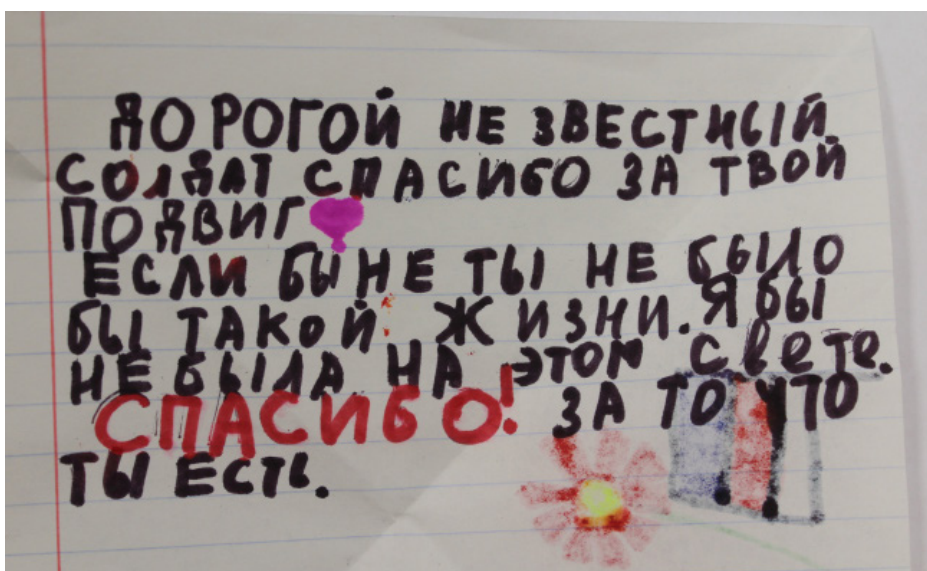 ДОРОГОЙ НЕ ЗВЕСТНЫЙ.
СОЛДАТ СПАСИБО ЗА ТВОЙ
ПОДВИГ
ЕСЛИ БЫ НЕ ТЫ НЕ БЫЛО
БЫ ТАКОЙ ЖИЗНИ. Я БЫ
НЕ БЫЛА НА ЭТОМ СВЕТЕ.
СПАСИБО! ЗА ТО ЧТО
ТЫ ЕСТЬ.